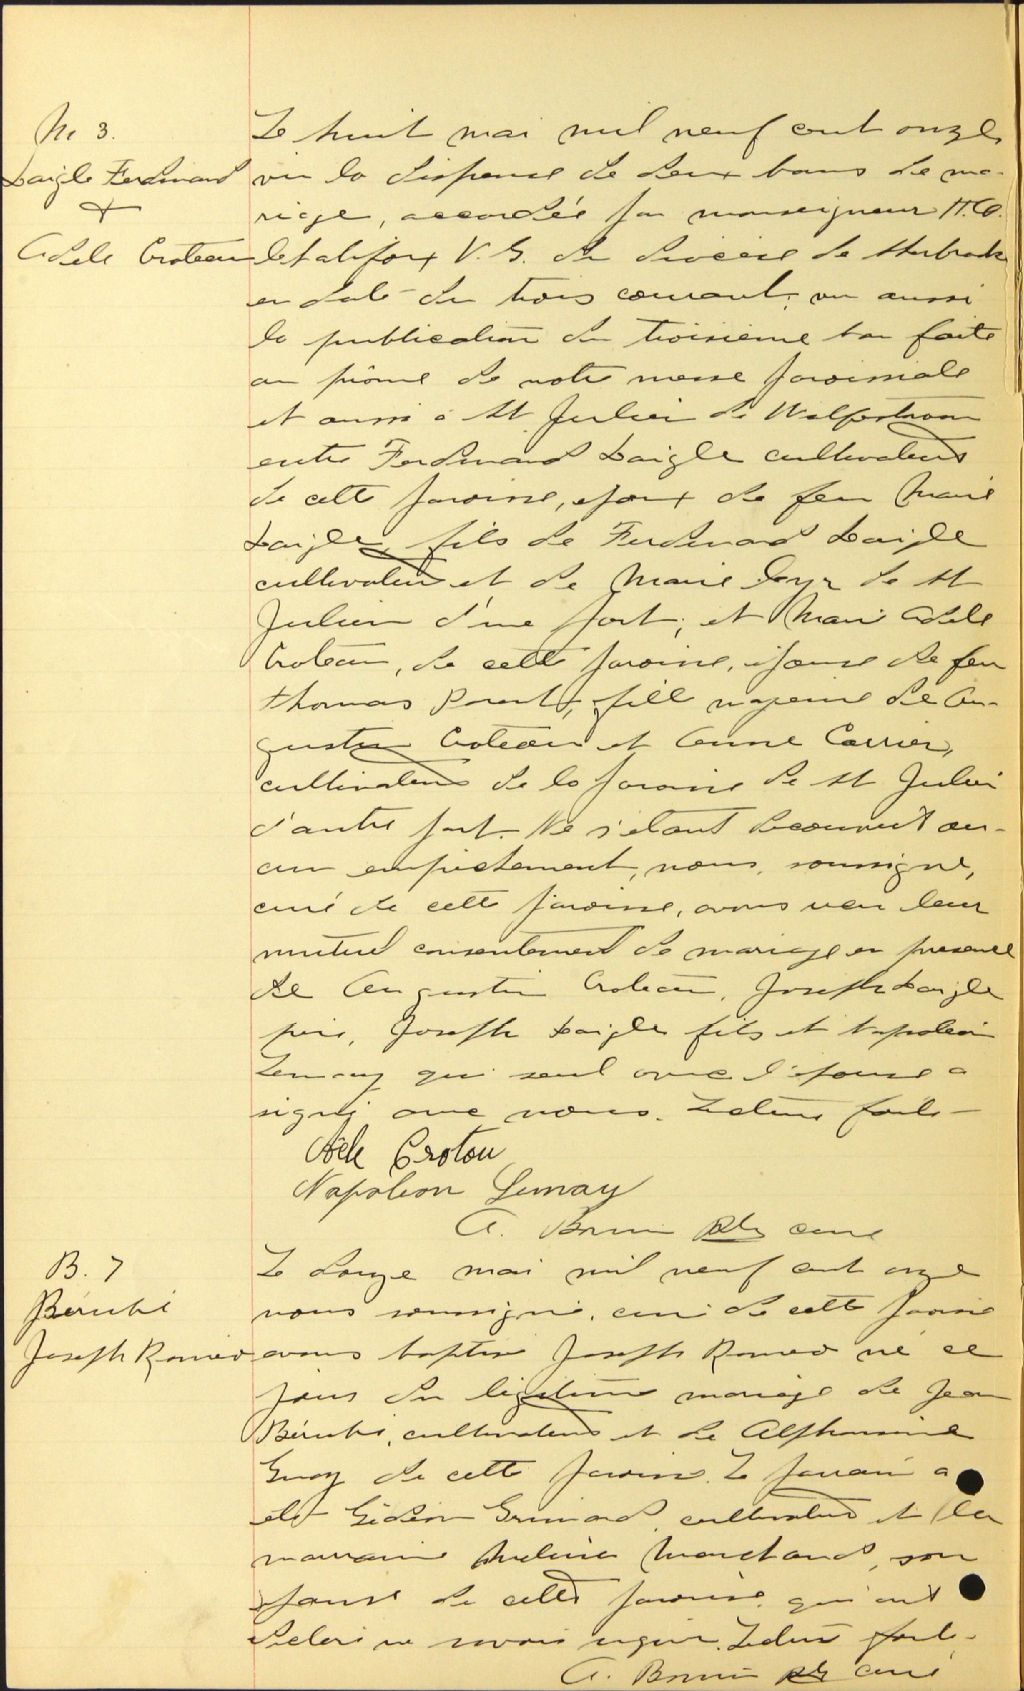 M. 3.
Daigle Ferdinand
+
Adele Croteau
Le huit mai mil neuf cent onze
vu la dispense de deux bans de ma-
riage, accordée par monseigneur H. O.
Chalifoux V. G. du diocèse de Sherbrooke
en date du trois courant; vu aussi
la publication du troisieme ban faite
au prône de notre messe paroissiale
et aussi à St Julien de Wolfestown
entre Ferdinand Daigle cultivateur
de cette paroisse, epoux de feu Marie
Daigle, fils de Ferdinand Daigle
cultivateur et de Marie Cyr de St
Julien d'une part; et Marie Adele
Croteau, de cette paroisse, épouse de feu
Thomas Parent, fille majeure de Au-
gustin Croteau et Anne Carrier,
cultivateur de la paroisse de St Julien
d'autre part. Ne s'etant decouvert au-
cun empêchement, nous, soussigné,
curé de cette paroisse, avons reçu leur
mutuel consentement de mariage en presence
de Augustin Croteau, Joseph Daigle
père, Joseph Daigle fils et Napoléon
Lemay qui seul avec l'épouse a
signé avec nous. Lecture faite-
Adele Crotou
Napoleon Lemay
A. Ptre curé
B. 7
Bérubé
Joseph Romeo
Le douze mai mil neuf cent onze
nous soussigné, curé de cette paroisse
avons baptisé Joseph Romeo né ce
jour du légitime mariage de Jean
Bérubé, cultivateur et de Alphonsine
Guay de cette paroisse. Le parrain a
été Gédéon Grimard cultivateur et la
marraine Marchand, son
épouse de cette paroisse, qui ont
déclaré ne savoir signer. Lecture faite-
A. Ptre curé